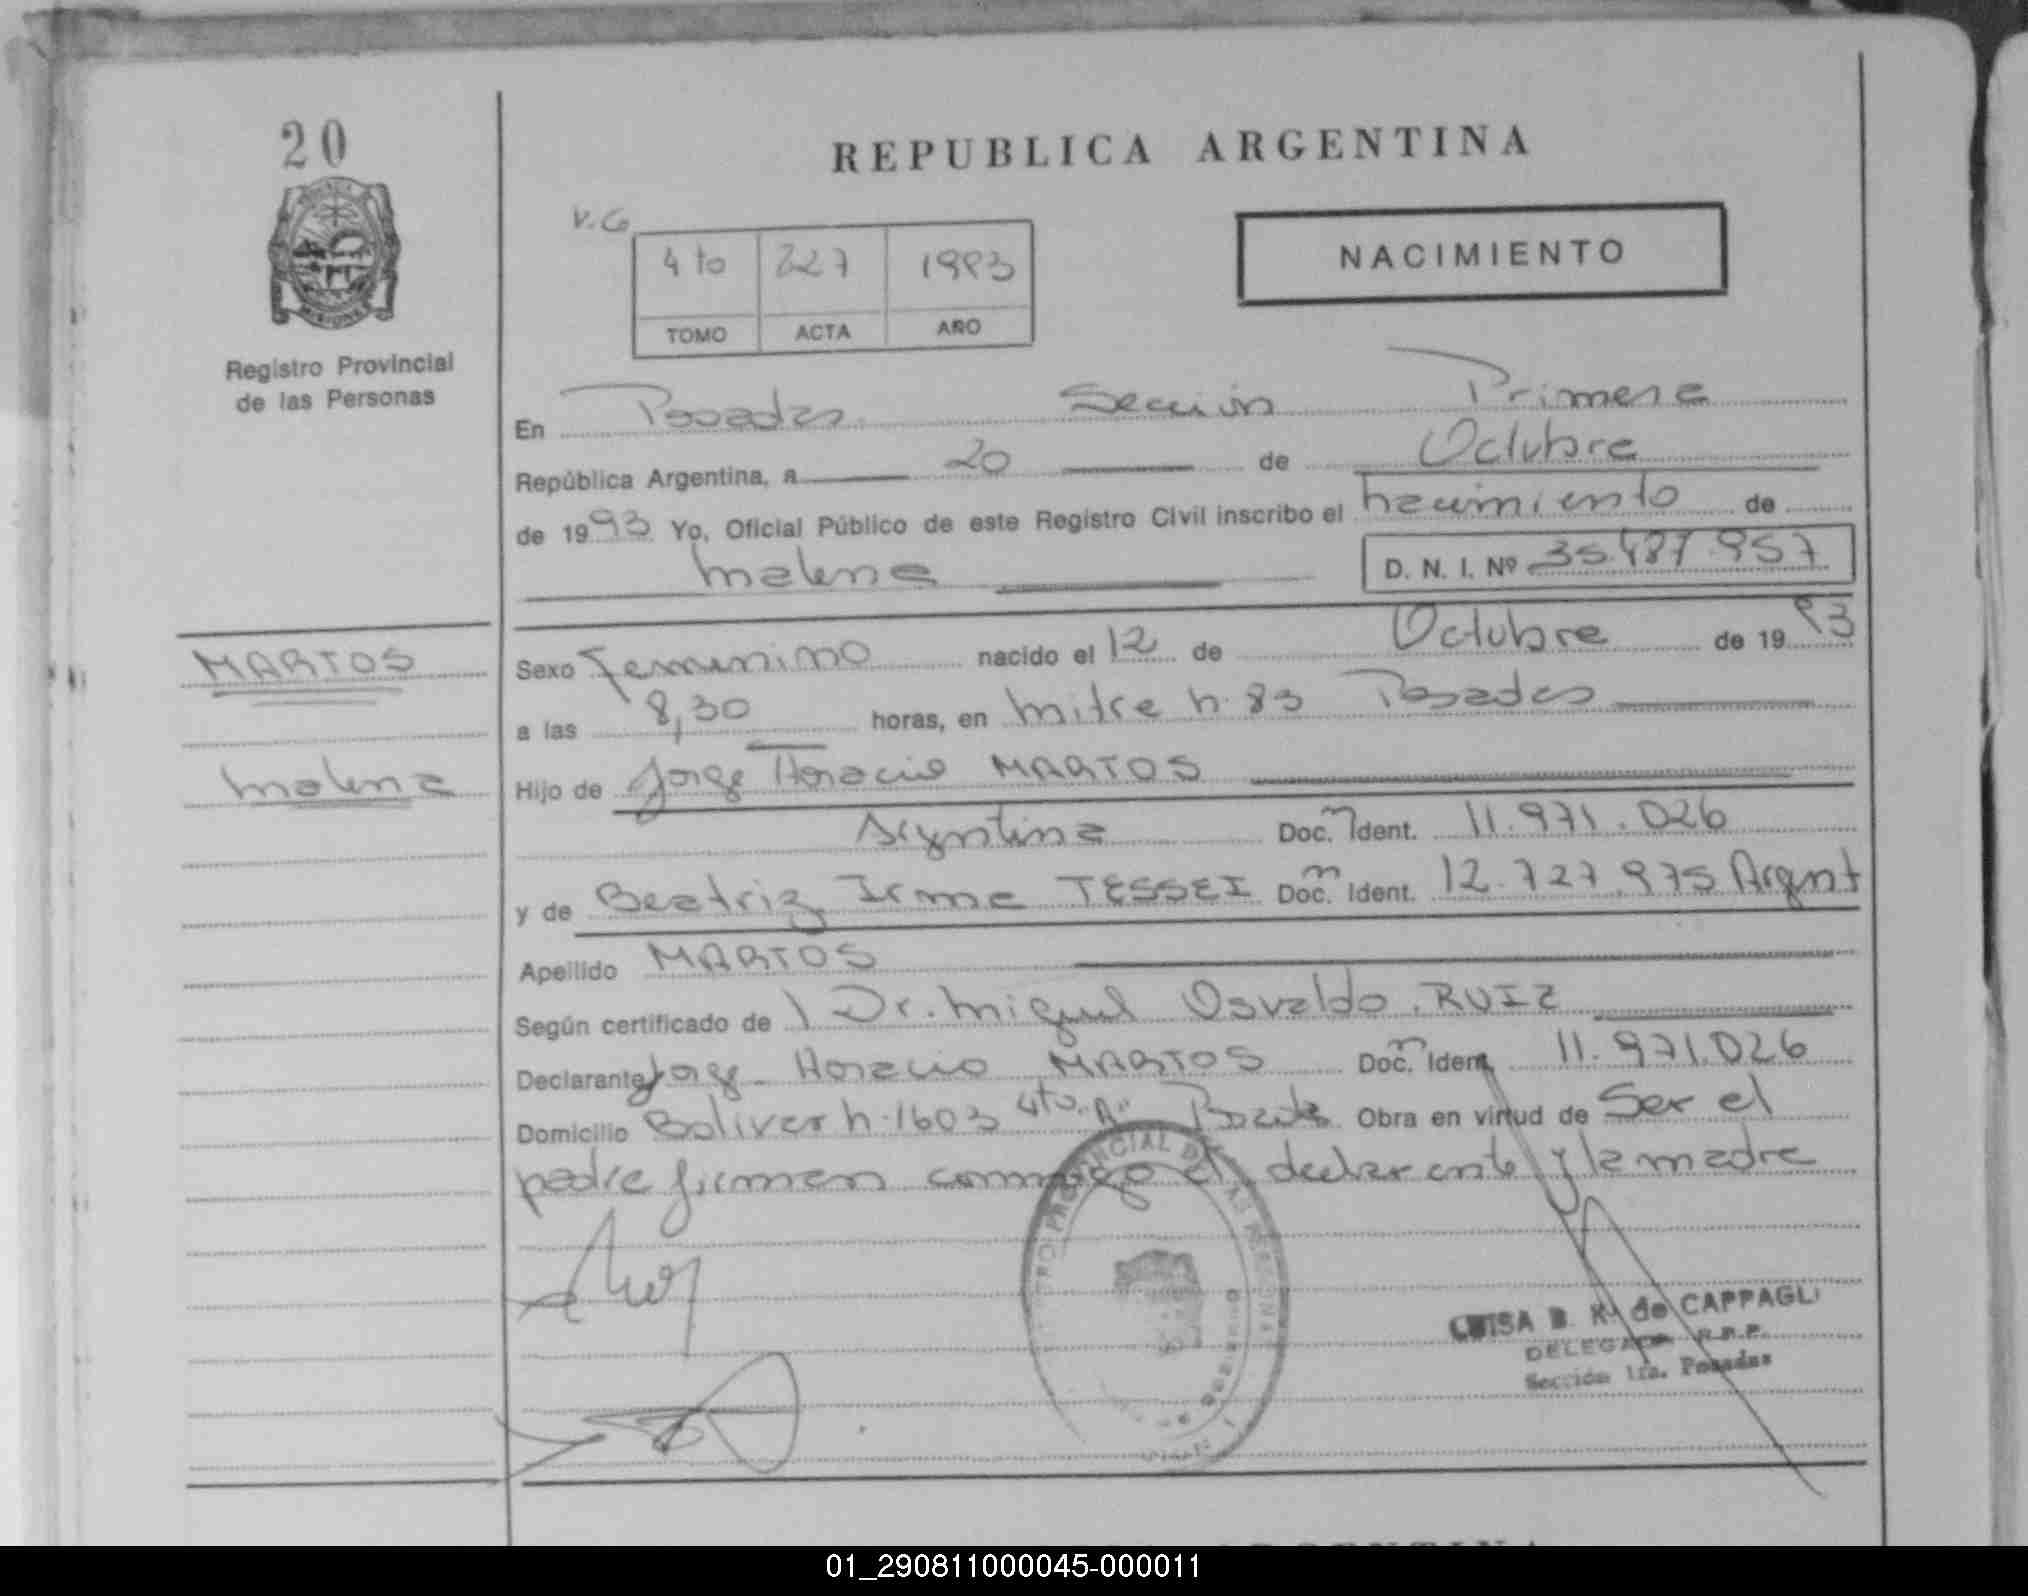 20
REPUBLICA ARGENTINA
V.C
NACIMIENTO
4to 227 1993
TOMO ACTA AÑO
Registro Provincial
de las Personas
En Posadas Sección Primera
República Argentina, a 20 de Octubre
de 1993 Yo, Oficial Público de este Registro Civil inscribo el nacimiento de
Malena D. N. I. Nº 35.487.957
MARTOS
Malena
Sexo Femenino nacido el 12 de Octubre de 1993
a las 8,30 horas, en Mitre n. 83 Posadas
Hijo de Jorge Horacio MARTOS
Argentina Doc. Ident. 11.971.026
y de Beatriz Irma TESSEI Doc. Ident. 12.727.975 Argent
Apellido MARTOS
Según certificado de Dr. Miguel Osvaldo RUIZ
Declarante Jorge Horacio MARTOS Doc. Ident. 11.971.026
Domicilio Bolivar n. 1603 4to "A" Posadas Obra en virtud de Ser el
padre firman conmigo el declarante y la madre
LUISA B. K. de CAPPAGLI
DELEGADA R.P.P.
Sección 1ra. Posadas
01_290811000045-000011